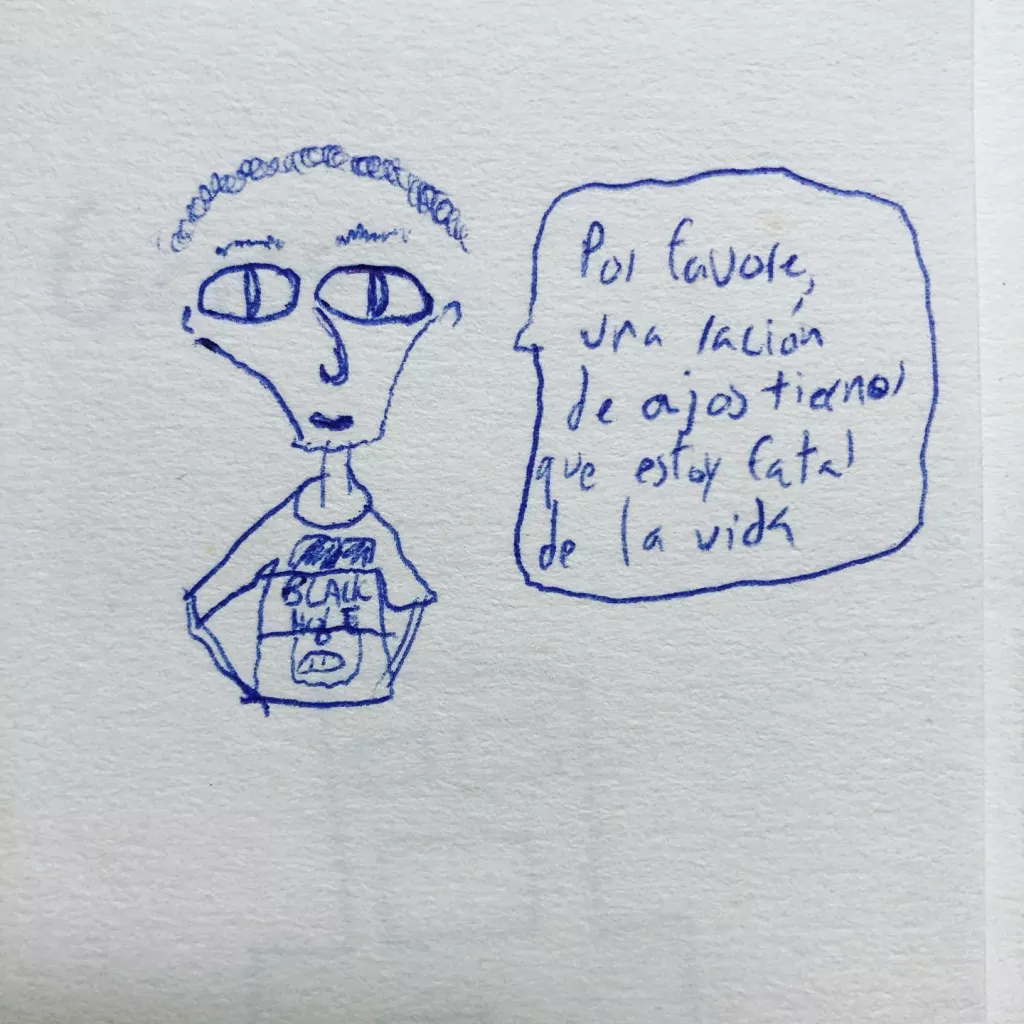 BLACK
HOLE
Por favore,
una ración
de ajos tiernos
que estoy fatal
de la vida